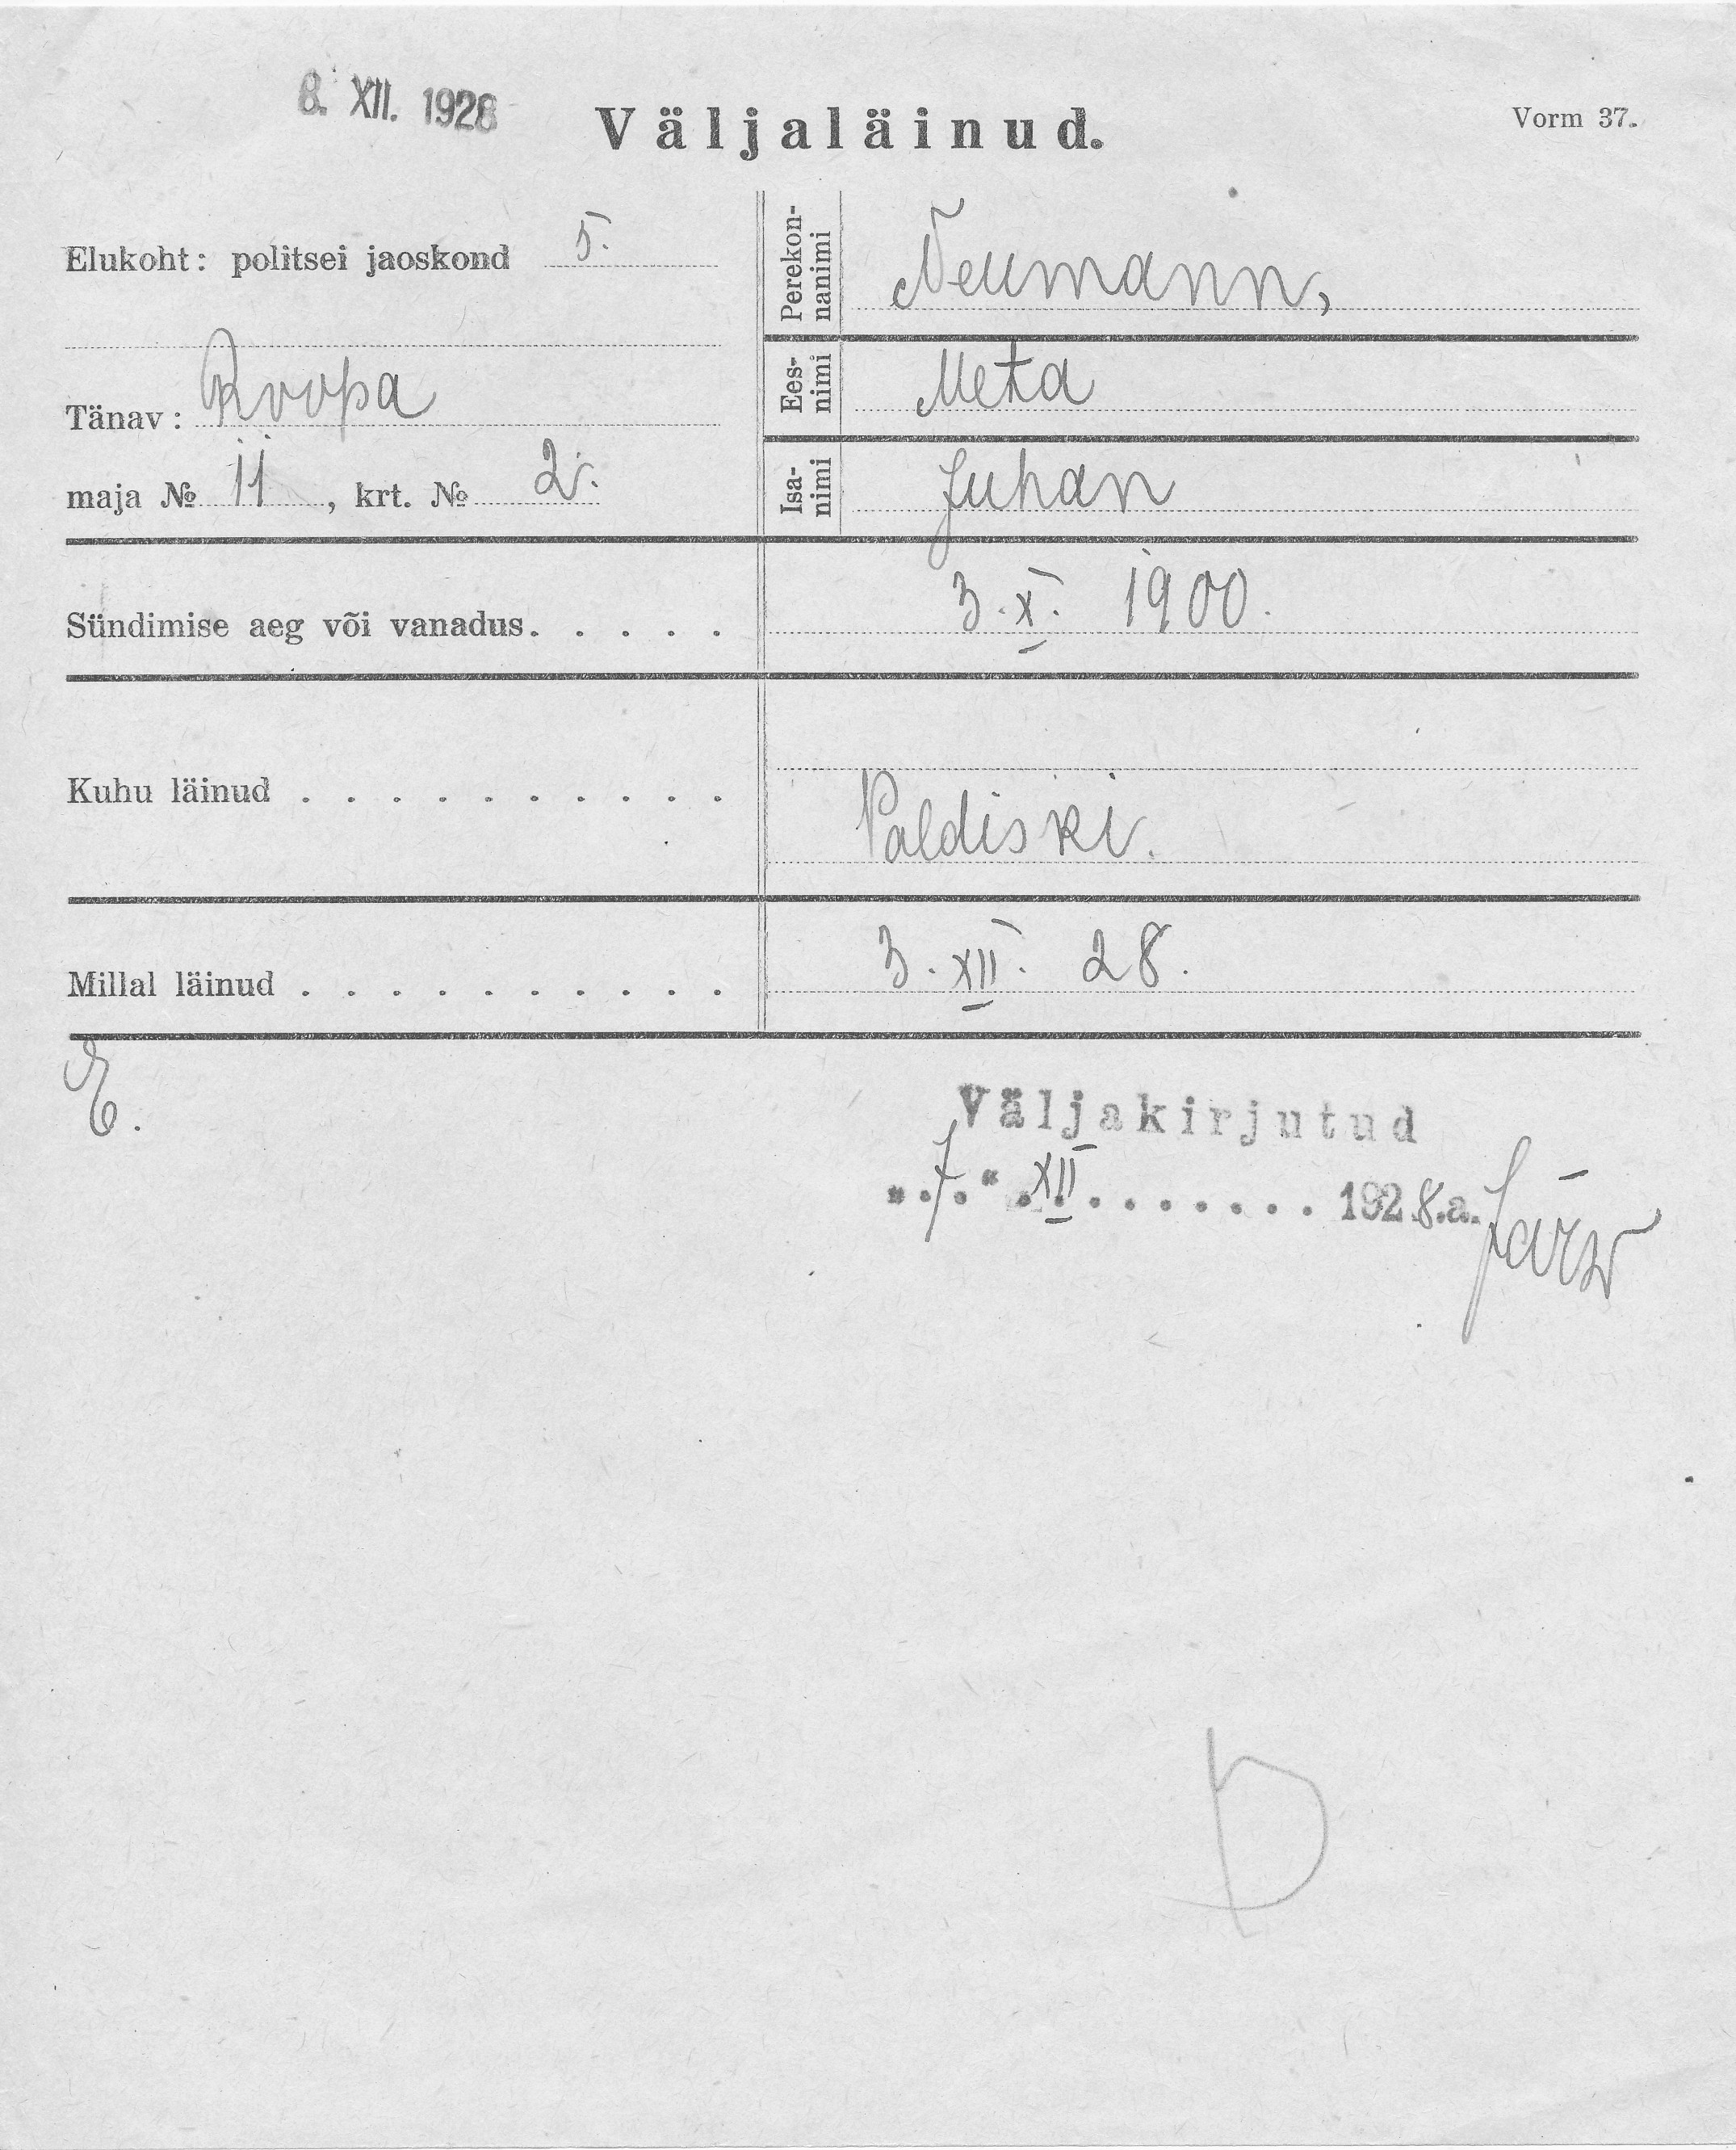 8. XII. 1928
Väljaläinud.
Vorm 37.
Elukoht: politsei jaoskond 5.
Tänav: Roopa
maja № 11, krt. № 2.
Perekon-
nanimi
Neumann,
Ees-
nimi
Meta
Isa-
nimi
Juhan
Sündimise aeg või vanadus. . . . . 3. X. 1900.
Kuhu läinud . . . . . . . . . . Paldiski.
Millal läinud . . . . . . . . . . 3. XII. 28.
E.
Väljakirjutud
„ 7. “ XII. . . . . . . . 1928.a. Järw
D